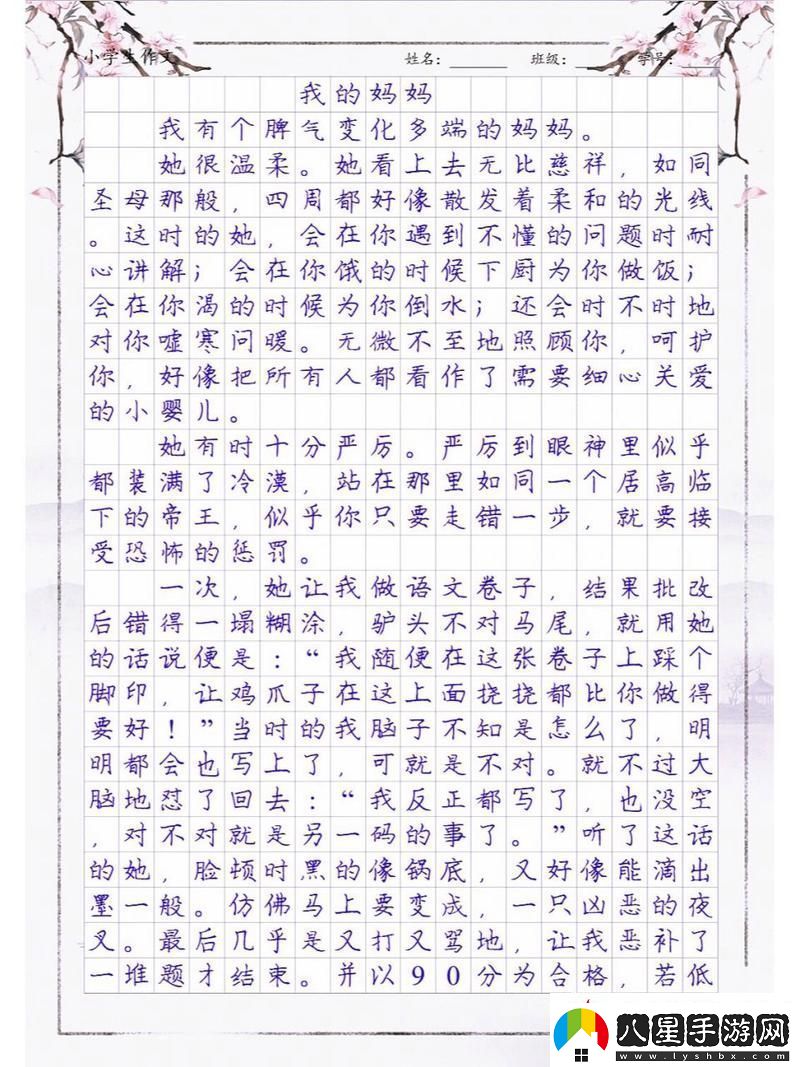 小学生作文
姓名：
班级：
学号：
我的妈妈
我有个脾气变化多端的妈妈。
她很温柔。她看上去无比慈祥，如同
圣母那般，四周都好像散发着柔和的光线
。这时的她，会在你遇到不懂的问题时耐
心讲解；会在你饿的时候下厨为你做饭；
会在你渴的时候为你倒水；还会时不时地
对你嘘寒问暖。无微不至地照顾你，呵护
你，好像把所有人都看作了需要细心关爱
的小婴儿。
她有时十分严厉。严厉到眼神里似乎
都装满了冷漠，站在那里如同一个居高临
下的帝王，似乎你只要走错一步，就要接
受恐怖的惩罚。
一次，她让我做语文卷子，结果批改
后错得一塌糊涂，驴头不对马尾，就用她
的话说便是：“我随便在这张卷子上踩个
脚印，让鸡爪子在这上面挠挠都比你做得
要好！”当时的我脑子不知是怎么了，明
明都会也写上了，可就是不对。就不过大
脑地怼了回去：“我反正都写了，也没空
，对不对就是另一码的事了。”听了这话
的她，脸顿时黑的像锅底，又好像能滴出
墨一般。仿佛马上要变成，一只凶恶的夜
叉。最后几乎是又打又骂地，让我恶补了
一堆题才结束。并以90分为合格，若低
八星手游网
www.lyshbx.com